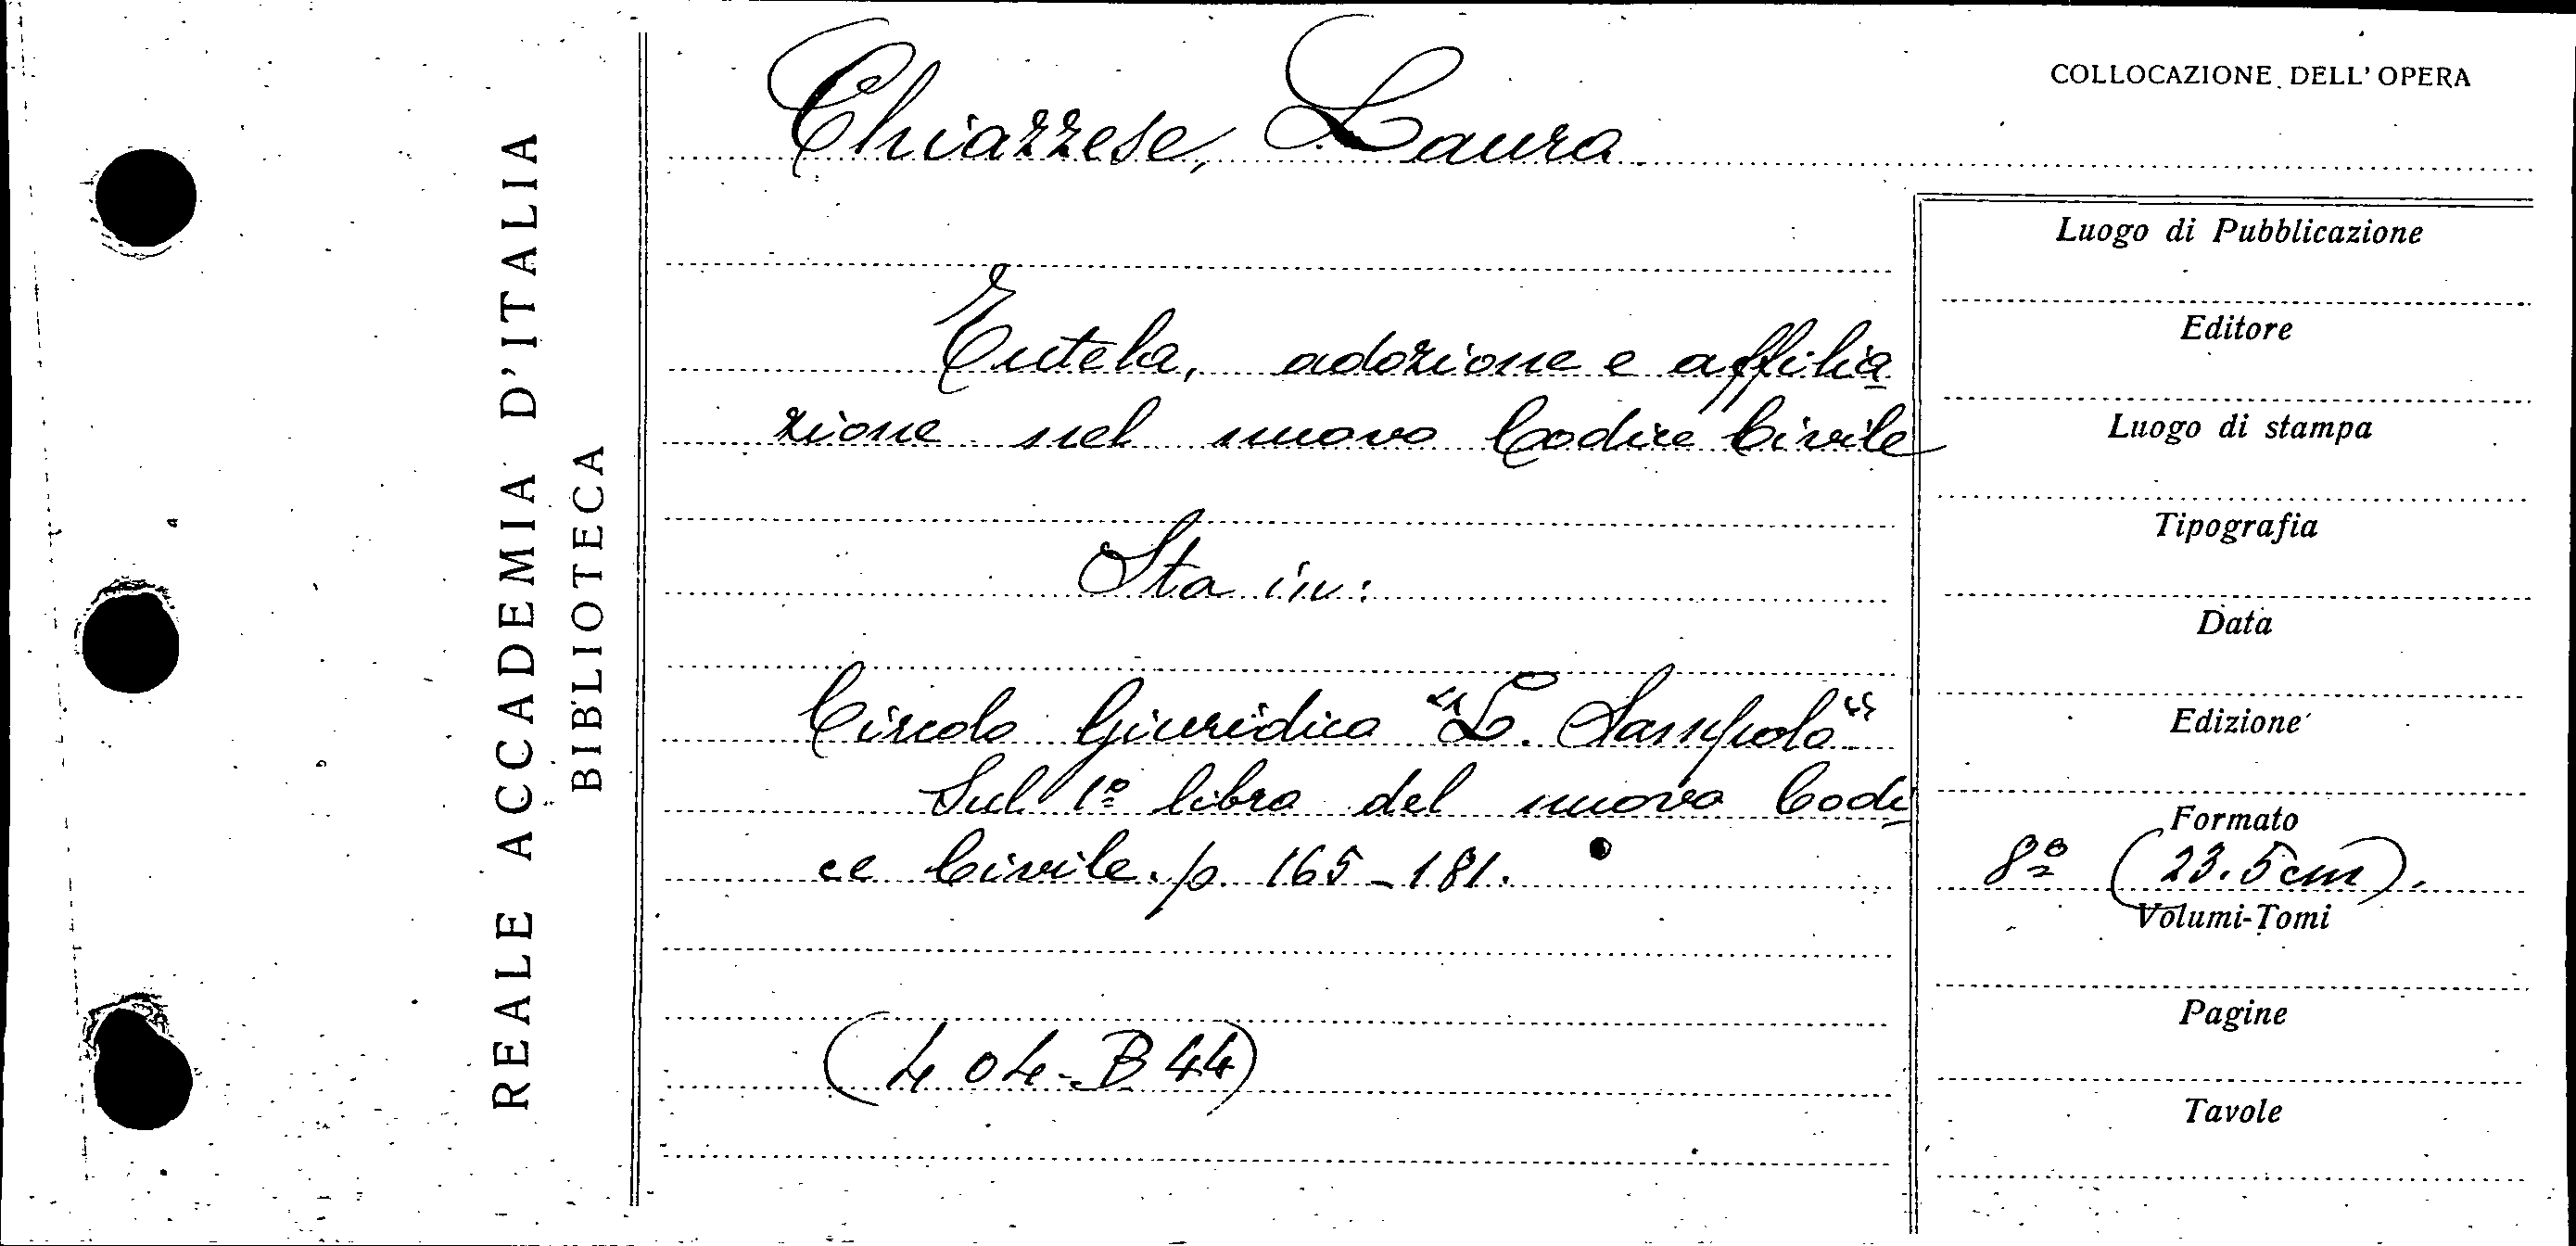 REALE ACCADEMIA D'ITALIA
BIBLIOTECA
Chiazzese, Laura
COLLOCAZIONE DELL'OPERA
Tutela, adozione e affilia
zione nel nuovo Codice Civile
Sta in:
Circolo Giuridico "L. Sampolo"
Sul 1º libro del nuovo Codi
ce Civile. p. 165-181.
(404-B44)
Luogo di Pubblicazione
Editore
Luogo di stampa
Tipografia
Data
Edizione
Formato
8º (23.5 cm).
Volumi-Tomi
Pagine
Tavole